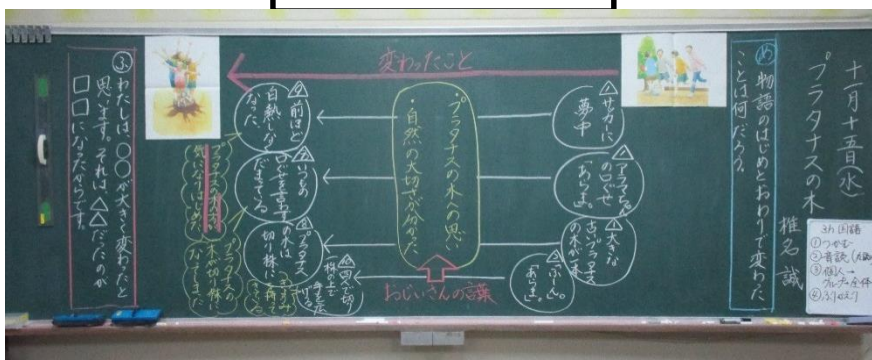 十一月十五日(水)
プラタナスの木
椎名誠
3h 国語
①つかむ
②音読
③個人→
グループ→全体
④ふりかえり
め 物語のはじめとおわりで変わった
ことは何だろう。
変わったこと
サッカーに
夢中
アラマちゃん
の口ぐせ
「あらま。」
大きな
古いプラタナス
の木が一本
「ふーん。」
「あらま。」
・プラタナスの木への思い
・自然の大切さが分かった
おじいさんの言葉
前ほど
白熱しなく
なった
いつもの
口ぐせを言わず
だまっている
プラタナス
の木は
切り株に
四人で切り
株の上で
プラタナスの
木が切り株に
なってしまった
気になりはじめた
ふ わたしは、○○が大きく変わったと
思います。それは、△△だったのが
□□になったからです。